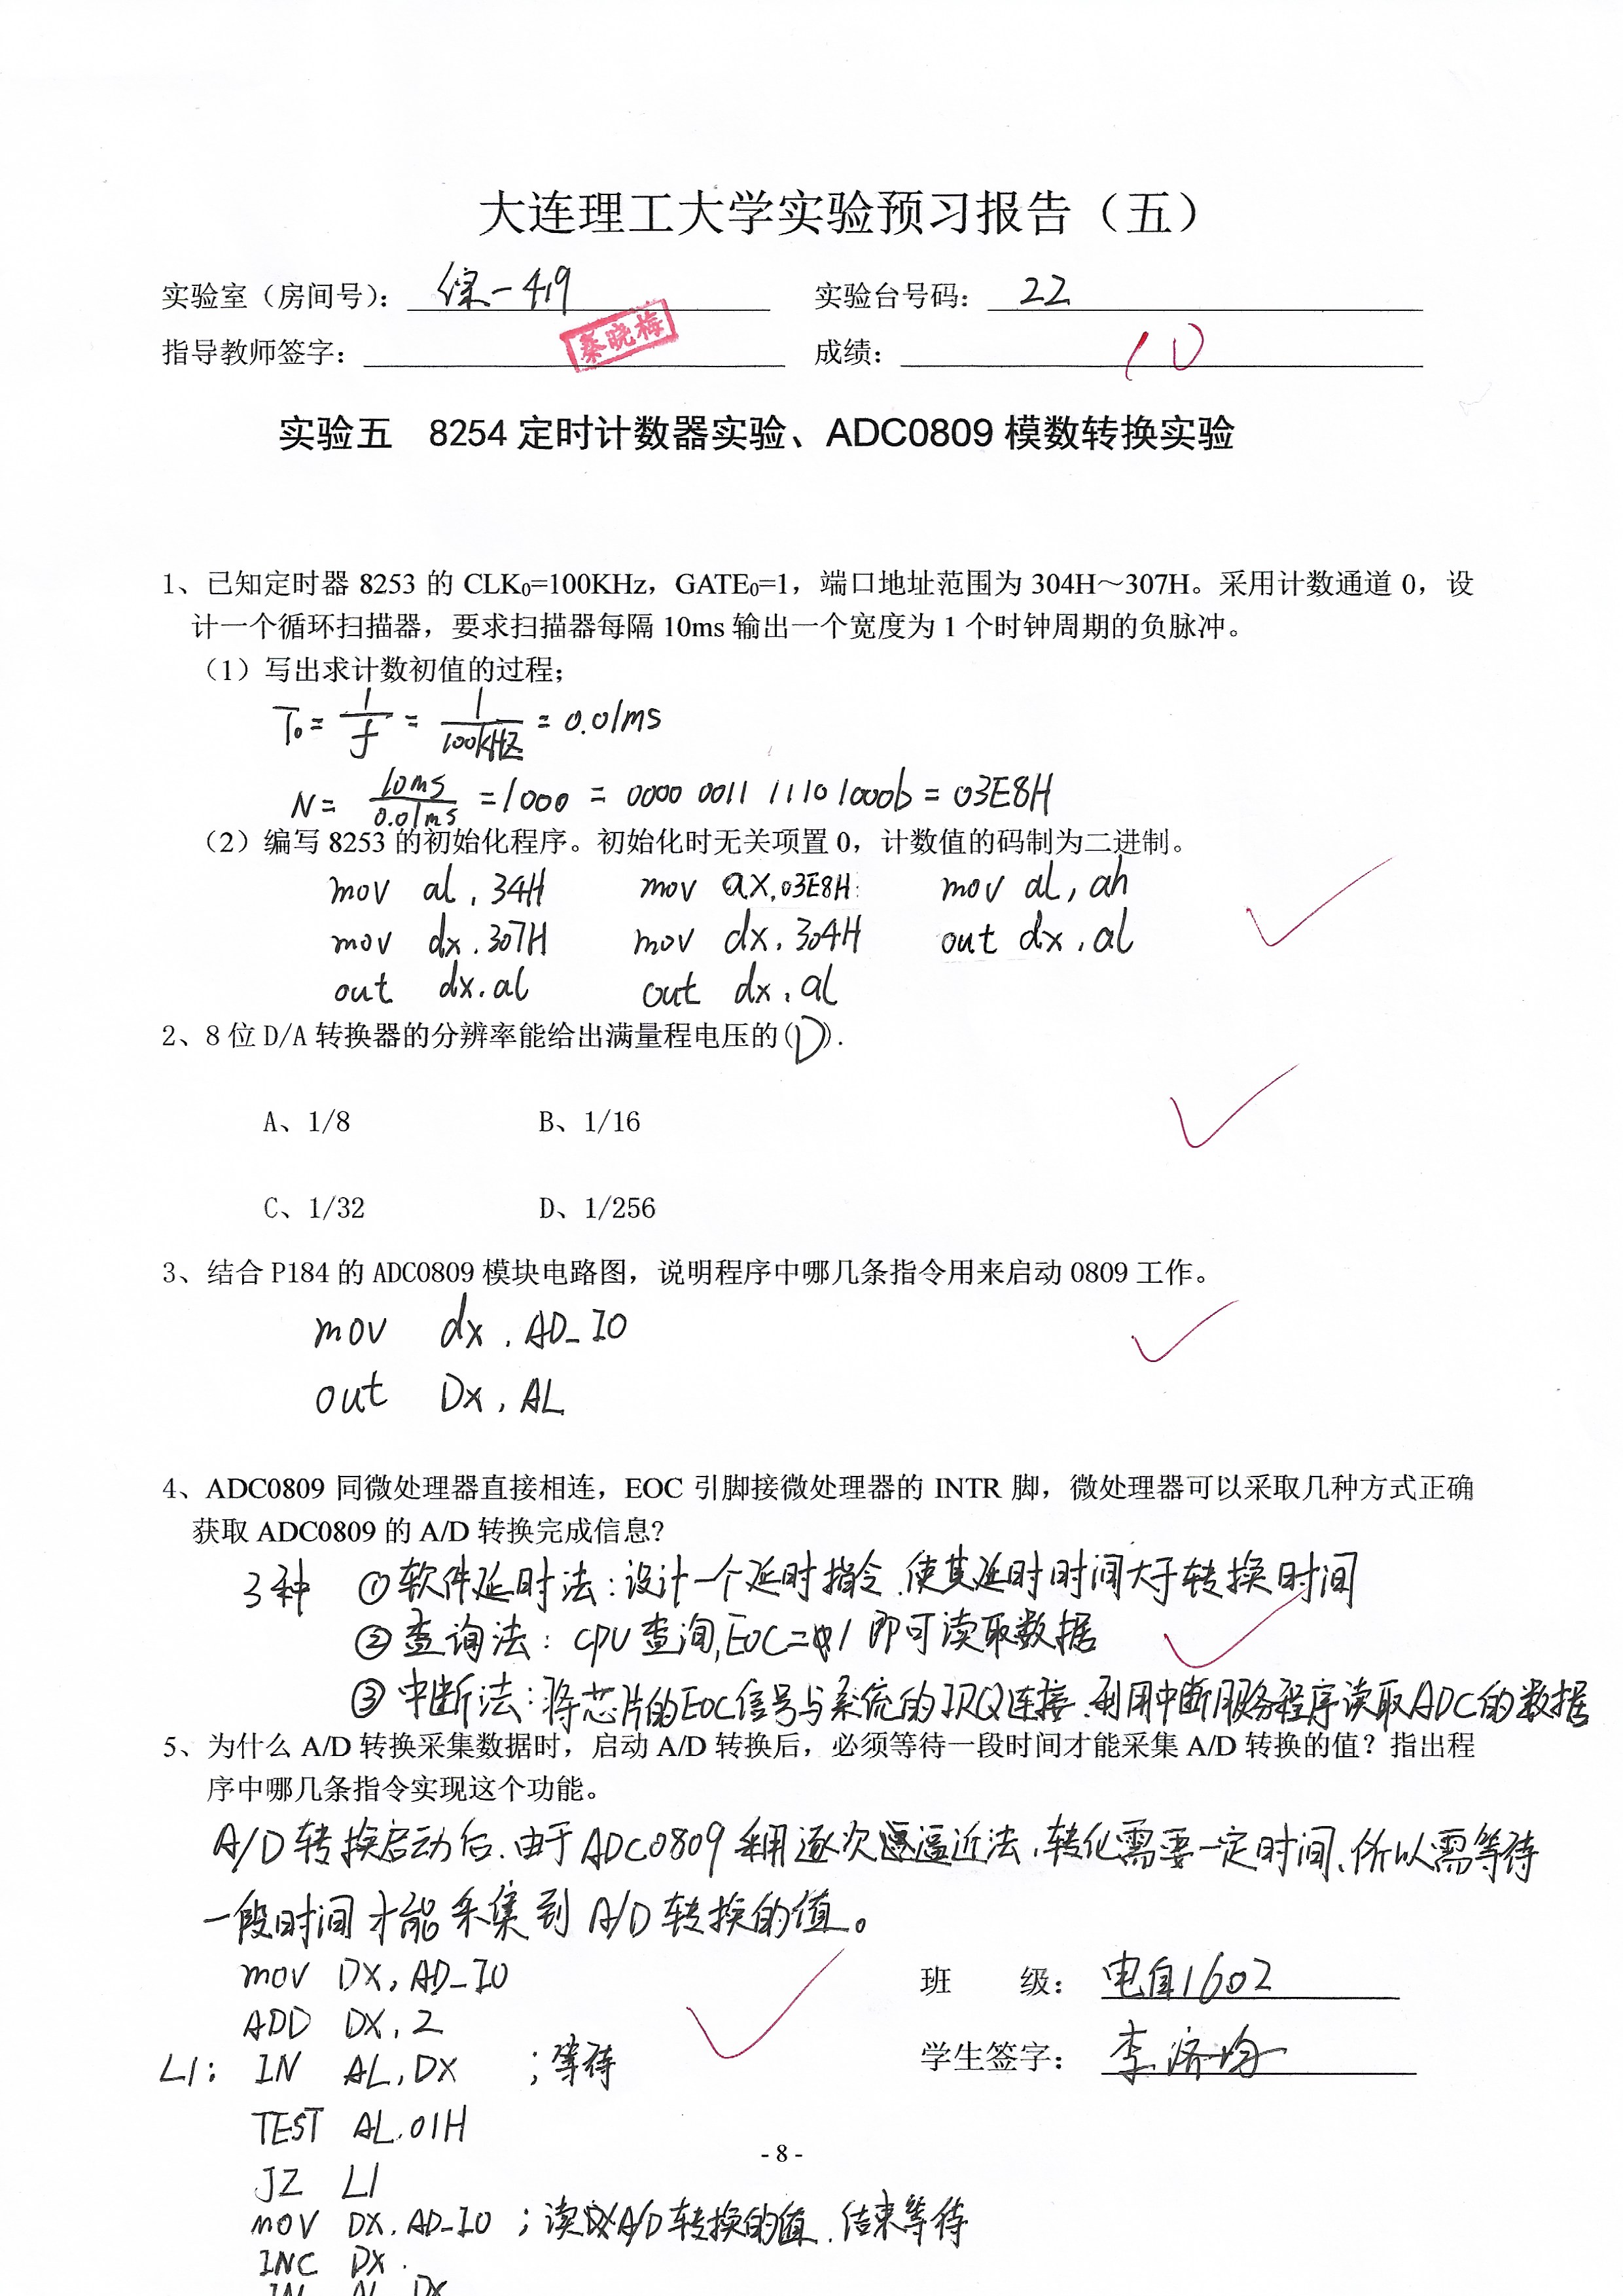 大连理工大学实验预习报告（五）
实验室（房间号）：综一419 实验台号码：22
指导教师签字：秦晓梅 成绩：10
实验五 8254定时计数器实验、ADC0809模数转换实验
1、已知定时器 8253 的 CLK₀=100KHz，GATE₀=1，端口地址范围为 304H～307H。采用计数通道 0，设
计一个循环扫描器，要求扫描器每隔 10ms 输出一个宽度为 1 个时钟周期的负脉冲。
（1）写出求计数初值的过程；
T₀ = 1/f = 1/100KHZ = 0.01ms
N = 10ms/0.01ms = 1000 = 0000 0011 1110 1000b = 03E8H
（2）编写 8253 的初始化程序。初始化时无关项置 0，计数值的码制为二进制。
mov al, 34H mov ax, 03E8H mov al, ah
mov dx, 307H mov dx, 304H out dx, al
out dx, al out dx, al
2、8 位 D/A 转换器的分辨率能给出满量程电压的(D).
A、1/8 B、1/16
C、1/32 D、1/256
3、结合 P184 的 ADC0809 模块电路图，说明程序中哪几条指令用来启动 0809 工作。
mov dx, AD_IO
out DX, AL
4、ADC0809 同微处理器直接相连，EOC 引脚接微处理器的 INTR 脚，微处理器可以采取几种方式正确
获取 ADC0809 的 A/D 转换完成信息？
3种 ①软件延时法：设计一个延时指令，使其延时时间大于转换时间
②查询法：CPU查询，EOC=1即可读取数据
③中断法：将芯片的EOC信号与系统的IRQ连接，利用中断服务程序读取ADC的数据
5、为什么 A/D 转换采集数据时，启动 A/D 转换后，必须等待一段时间才能采集 A/D 转换的值？指出程
序中哪几条指令实现这个功能。
A/D转换启动后，由于ADC0809采用逐次逼近法，转化需要一定时间，所以需等待
一段时间才能采集到A/D转换的值。
mov DX, AD_IO
班 级：电自1602
ADD DX, 2
学生签字：李济均
L1: IN AL, DX ;等待
TEST AL, 01H
- 8 -
JZ L1
MOV DX, AD_IO ;读A/D转换的值，结束等待
INC DX
IN AL, DX